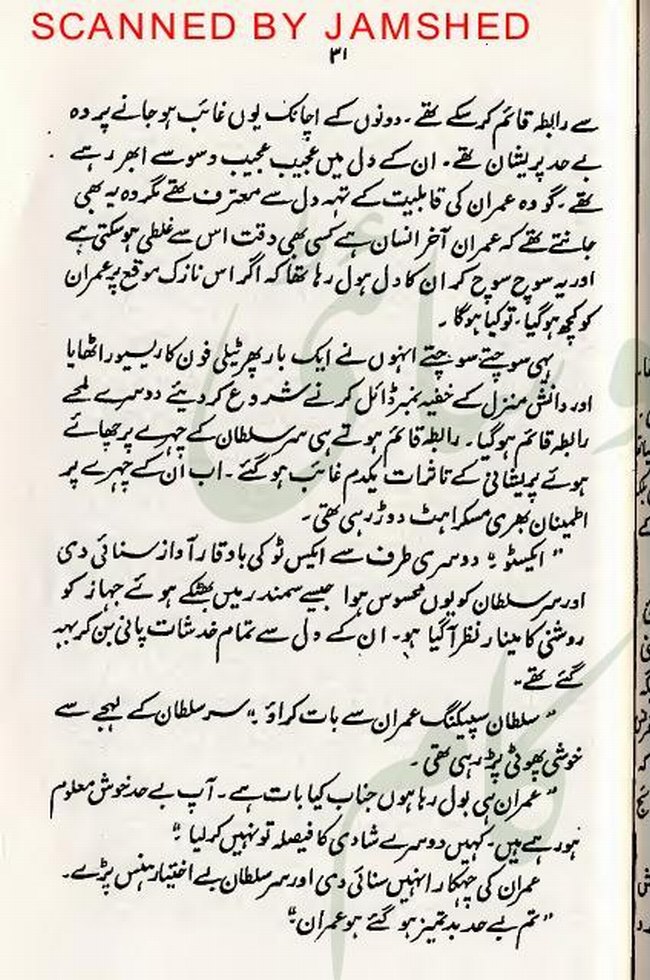 SCANNED BY JAMSHED
۳۱
سے رابطہ قائم کر سکے تھے۔ دونوں کے اچانک یوں غائب ہو جانے پر وہ
بے حد پریشان تھے۔ ان کے دل میں عجیب عجیب وسوسے ابھر رہے
تھے۔ گو وہ عمران کی قابلیت کے تہہ دل سے معترف تھے مگر وہ یہ بھی
جانتے تھے کہ عمران آخر انسان ہے کسی بھی وقت اس سے غلطی ہو سکتی ہے
اور یہ سوچ سوچ کر ان کا دل ہول رہا تھا کہ اگر اس نازک موقع پر عمران
کو کچھ ہو گیا۔ تو کیا ہو گا۔
یہی سوچتے سوچتے انہوں نے ایک بار پھر ٹیلی فون کا ریسیور اٹھایا
اور دانش منزل کے خفیہ نمبر ڈائل کرنے شروع کر دیئے دوسرے لمحے
رابطہ قائم ہو گیا۔ رابطہ قائم ہوتے ہی سر سلطان کے چہرے پر چھائے
ہوئے پریشانی کے تاثرات یکدم غائب ہو گئے۔ اب ان کے چہرے پر
اطمینان بھری مسکراہٹ دوڑ رہی تھی۔
"ایکسٹو" دوسری طرف سے ایکس ٹو کی باوقار آواز سنائی دی
اور سر سلطان کو یوں محسوس ہوا جیسے سمندر میں بھٹکے ہوئے جہاز کو
روشنی کا مینار نظر آ گیا ہو۔ ان کے دل سے تمام خدشات پانی بن کر بہہ
گئے تھے۔
"سلطان سپیکنگ عمران سے بات کراؤ" سر سلطان کے لہجے سے
خوشی پھوٹی پڑ رہی تھی۔
"عمران ہی بول رہا ہوں جناب کیا بات ہے۔ آپ بے حد خوش معلوم
ہو رہے ہیں۔ کہیں دوسرے شادی کا فیصلہ تو نہیں کر لیا"
عمران کی چہکار انہیں سنائی دی اور سر سلطان بے اختیار ہنس پڑے۔
"تم بے حد بدتمیز ہو گئے ہو عمران"